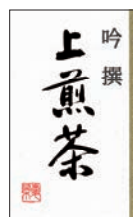 吟撰
上煎茶